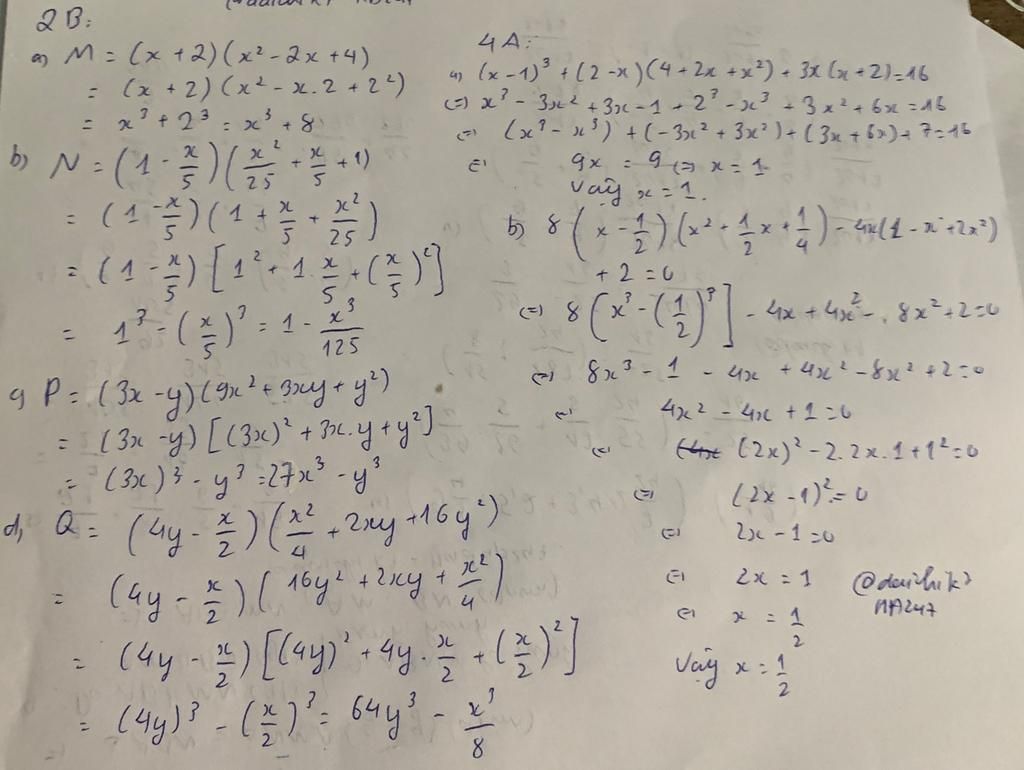 2B:
a) M = (x + 2)(x² - 2x + 4)
= (x + 2)(x² - x.2 + 2²)
= x³ + 2³ = x³ + 8
b) N = (1 - x/5)(x²/25 + x/5 + 1)
= (1 - x/5)(1 + x/5 + x²/25)
= (1 - x/5)[1² + 1.x/5 + (x/5)²]
= 1³ = (x/5)³ = 1 - x³/125
c) P = (3x - y)(9x² + 3xy + y²)
= (3x - y)[(3x)² + 3x.y + y²]
= (3x)³ - y³ = 27x³ - y³
d) Q = (4y - x/2)(x²/4 + 2xy + 16y²)
= (4y - x/2)(16y² + 2xy + x²/4)
= (4y - x/2)[(4y)² + 4y.x/2 + (x/2)²]
= (4y)³ - (x/2)³ = 64y³ - x³/8
4A:
a) (x - 1)³ + (2 - x)(4 + 2x + x²) + 3x(x + 2) = 16
(=) x³ - 3x² + 3x - 1 + 2³ - x³ + 3x² + 6x = 16
(=) (x³ - x³) + (-3x² + 3x²) + (3x + 6x) + 7 = 16
(=) 9x = 9 (=) x = 1
Vậy x = 1.
b) 8(x - 1/2)(x² + 1/2x + 1/4) - 4x(1 - x + 2x²)
+ 2 = 0
(=) 8(x³ - (1/2)³] - 4x + 4x² - 8x² + 2 = 0
(=) 8x³ - 1 - 4x + 4x² - 8x² + 2 = 0
(=) 4x² - 4x + 1 = 0
(=) (2x)² - 2.2x.1 + 1² = 0
(=) (2x - 1)² = 0
(=) 2x - 1 = 0
(=) 2x = 1
(=) x = 1/2
Vậy x = 1/2